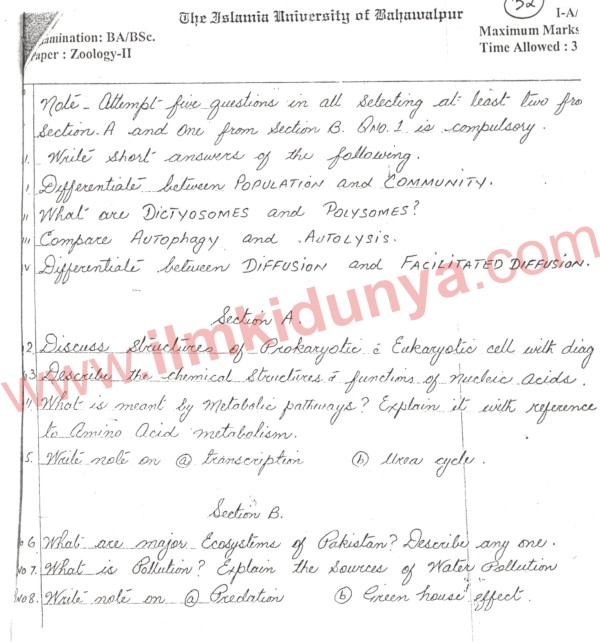 32
The Islamia University of Bahawalpur
I-A/
amination: BA/BSc.
Maximum Marks
aper : Zoology-II
Time Allowed : 3
Note - Attempt five questions in all selecting at least two fro
Section. A and One from Section B. QNO.1 is compulsory.
1. Write short answers of the following.
i Differentiate between POPULATION and COMMUNITY.
ii What are DICTYOSOMES and POLYSOMES?
iii Compare AUTOPHAGY and AUTOLYSIS.
iv Differentiate between DIFFUSION and FACILITATED DIFFUSION.
Section A.
2. Discuss Structures of Prokaryotic & Eukaryotic cell with diag
3. Describe the chemical Structures & functions of Nucleic Acids.
4. What is meant by Metabolic pathways? Explain it with reference
to Amino Acid metabolism.
5. Write note on (a) transcription (b) Urea cycle.
Section B.
No 6. What are major Ecosystems of Pakistan? Describe any one.
No 7. What is Pollution? Explain the Sources of Water Pollution
No 8. Write note on (a) Predation (b) Green house effect.
www.ilmkidunya.com